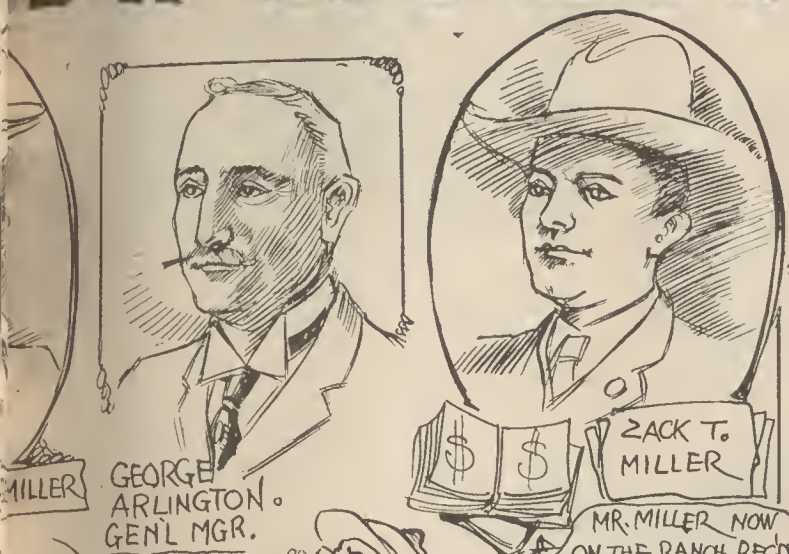 MILLER
GEORGE
ARLINGTON.
GEN'L MGR.
$ $
ZACK T.
MILLER
MR. MILLER NOW
ON THE RANCH